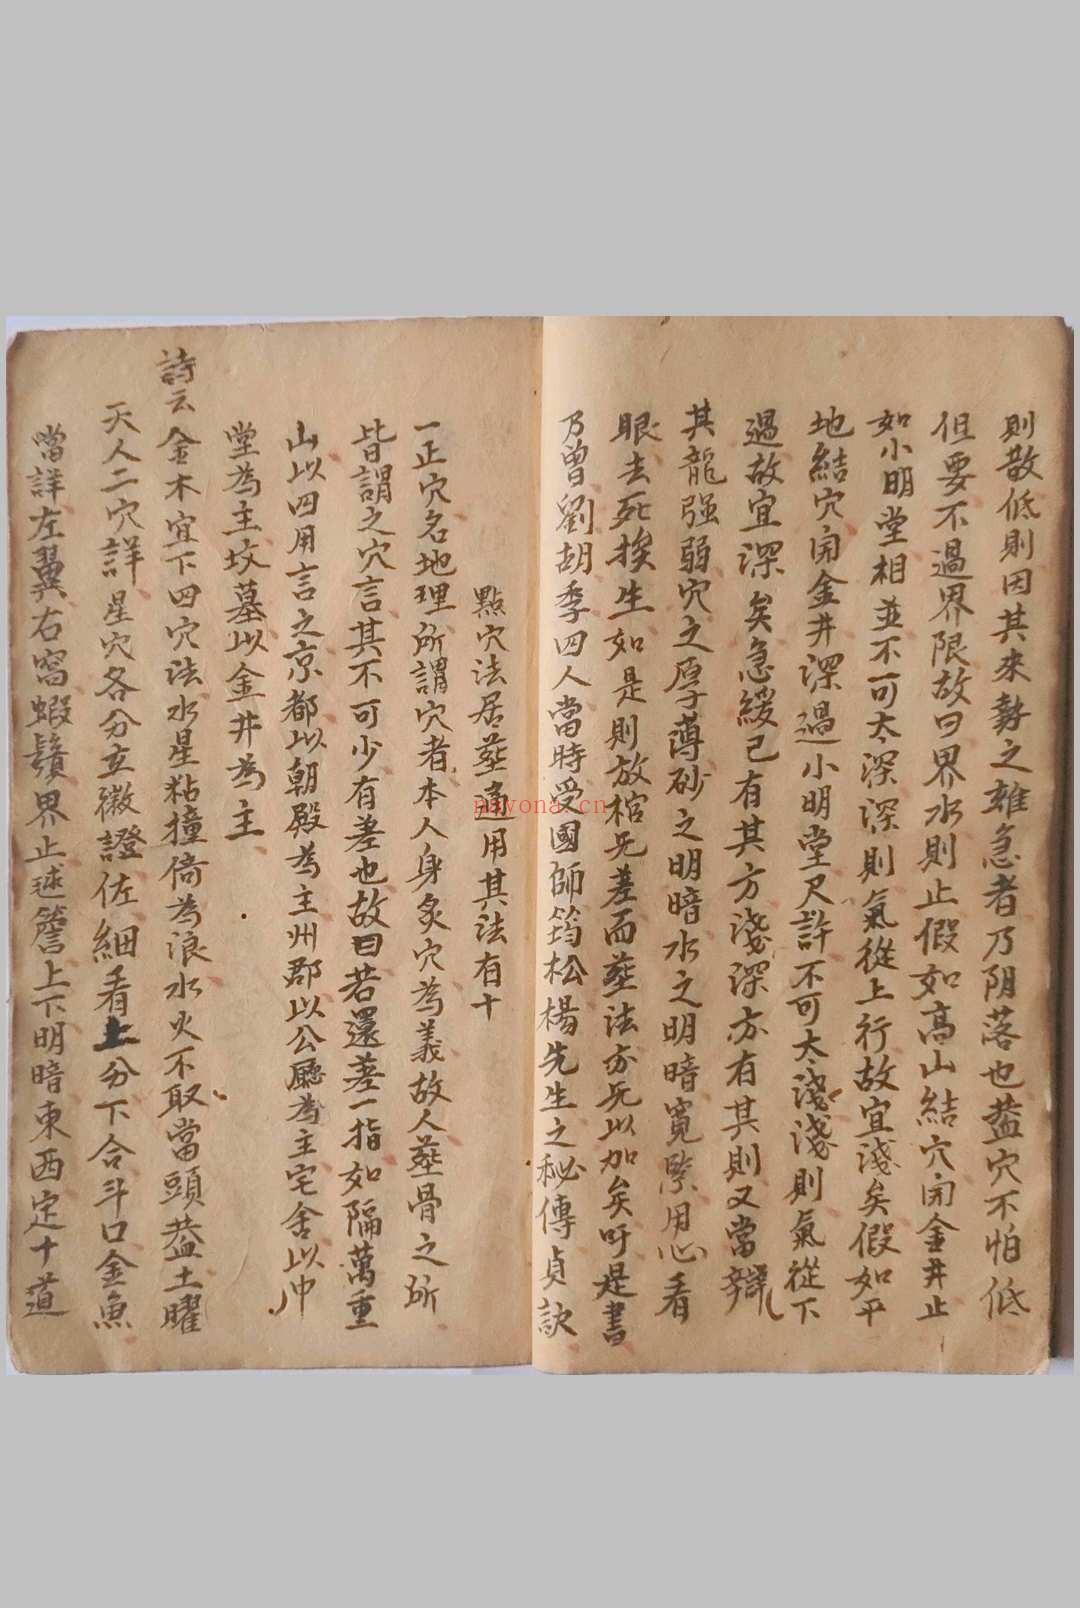 則散低則因其來勢之雄急者乃阴落也葢穴不怕低
但要不過界限故曰界水則止假如高山結穴開金井止
如小明堂相並不可太深深則氣從上行故宜淺矣假如平
地結穴開金井深過小明堂尺許不可太淺淺則氣從下
過故宜深矣急緩已有其方淺深亦有其則又當辯
其龍强弱穴之厚薄砂之明暗水之明暗寬緊用心看
眼去死挨生如是則放棺无差而葬法亦无以加矣吁是書
乃曾劉胡季四人當時受國師筠松楊先生之秘傳貞訣
點穴法居葬通用其法有十
一正穴名地理所謂穴者本人身炙穴為義故人葬骨之所
皆謂之穴言其不可少有差也故曰若還差一指如隔萬重
山以四用言之京都以朝殿為主州郡以公廳為主宅舍以中
堂為主坟墓以金井為主
詩云金木宜下四穴法水星粘撞倚為浪水火不取當頭葢土曜
天人二穴詳星穴各分立徽證佐細看上分下合斗口金魚
當詳左翼右窩蝦鬚界止毬簷上下明暗東西定十道
nayona.cn